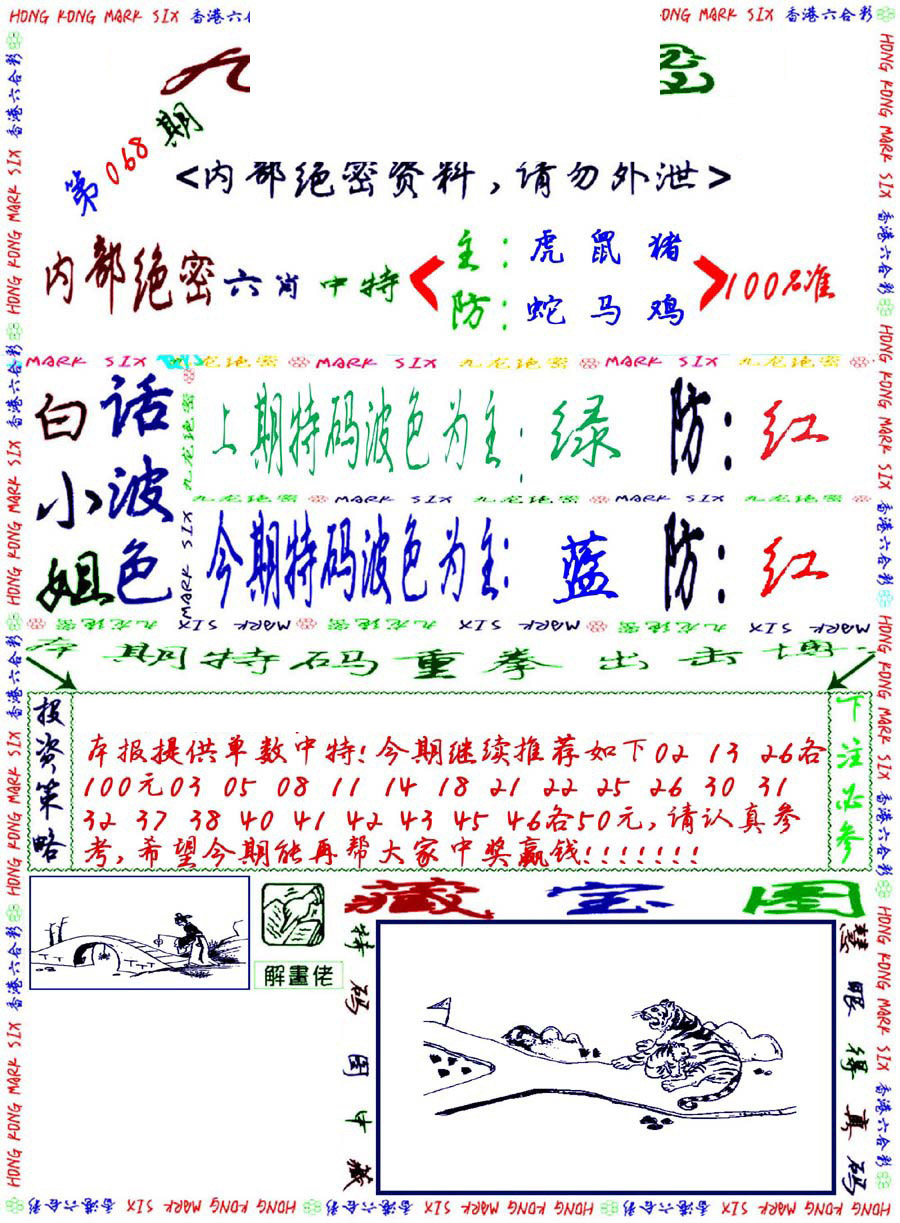 HONG KONG MARK SIX 香港六合彩
第068期
<内部绝密资料,请勿外泄>
内部绝密六肖中特
主:虎鼠猪
防:蛇马鸡
100%准
MARK SIX 九龙绝密 MARK SIX 九龙绝密 MARK SIX 九龙绝密
白话小波姐色
上期特码波色为主:绿 防:红
九龙绝密 MARK SIX 九龙绝密 MARK SIX 九龙绝密
今期特码波色为主:蓝 防:红
期特码重拳出击
投资策略
本报提供单数中特!今期继续推荐如下02 13 26各
100元03 05 08 11 14 18 21 22 25 26 30 31
32 37 38 40 41 42 43 45 46各50元,请认真参
考,希望今期能再帮大家中奖赢钱!!!!!!!
下注必参
解畫佬
藏宝图
特码图中藏
慧眼得真码